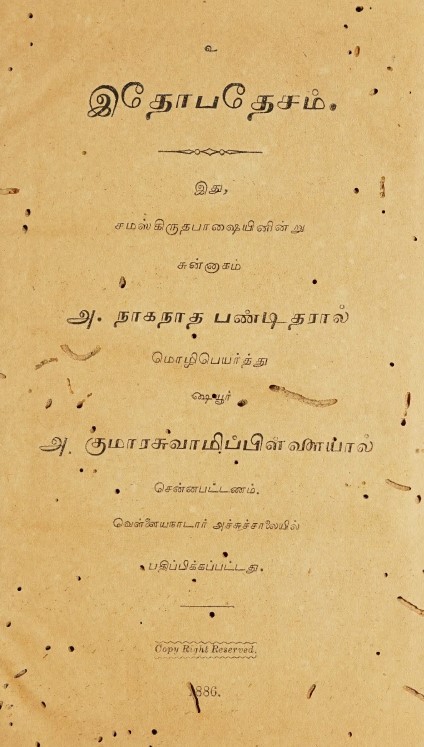 உ
இதோபதேசம்.
இது,
சமஸ்கிருதபாஷையினின்று
சுன்னாகம்
அ. நாகநாத பண்டிதரால்
மொழிபெயர்த்து
ஷெயூர்
அ. குமாரசுவாமிப்பிள்ளையால்
சென்னபட்டணம்.
வெள்ளையநாடார் அச்சுச்சாலையில்
பதிப்பிக்கப்பட்டது.
Copy Right Reserved.
1886.